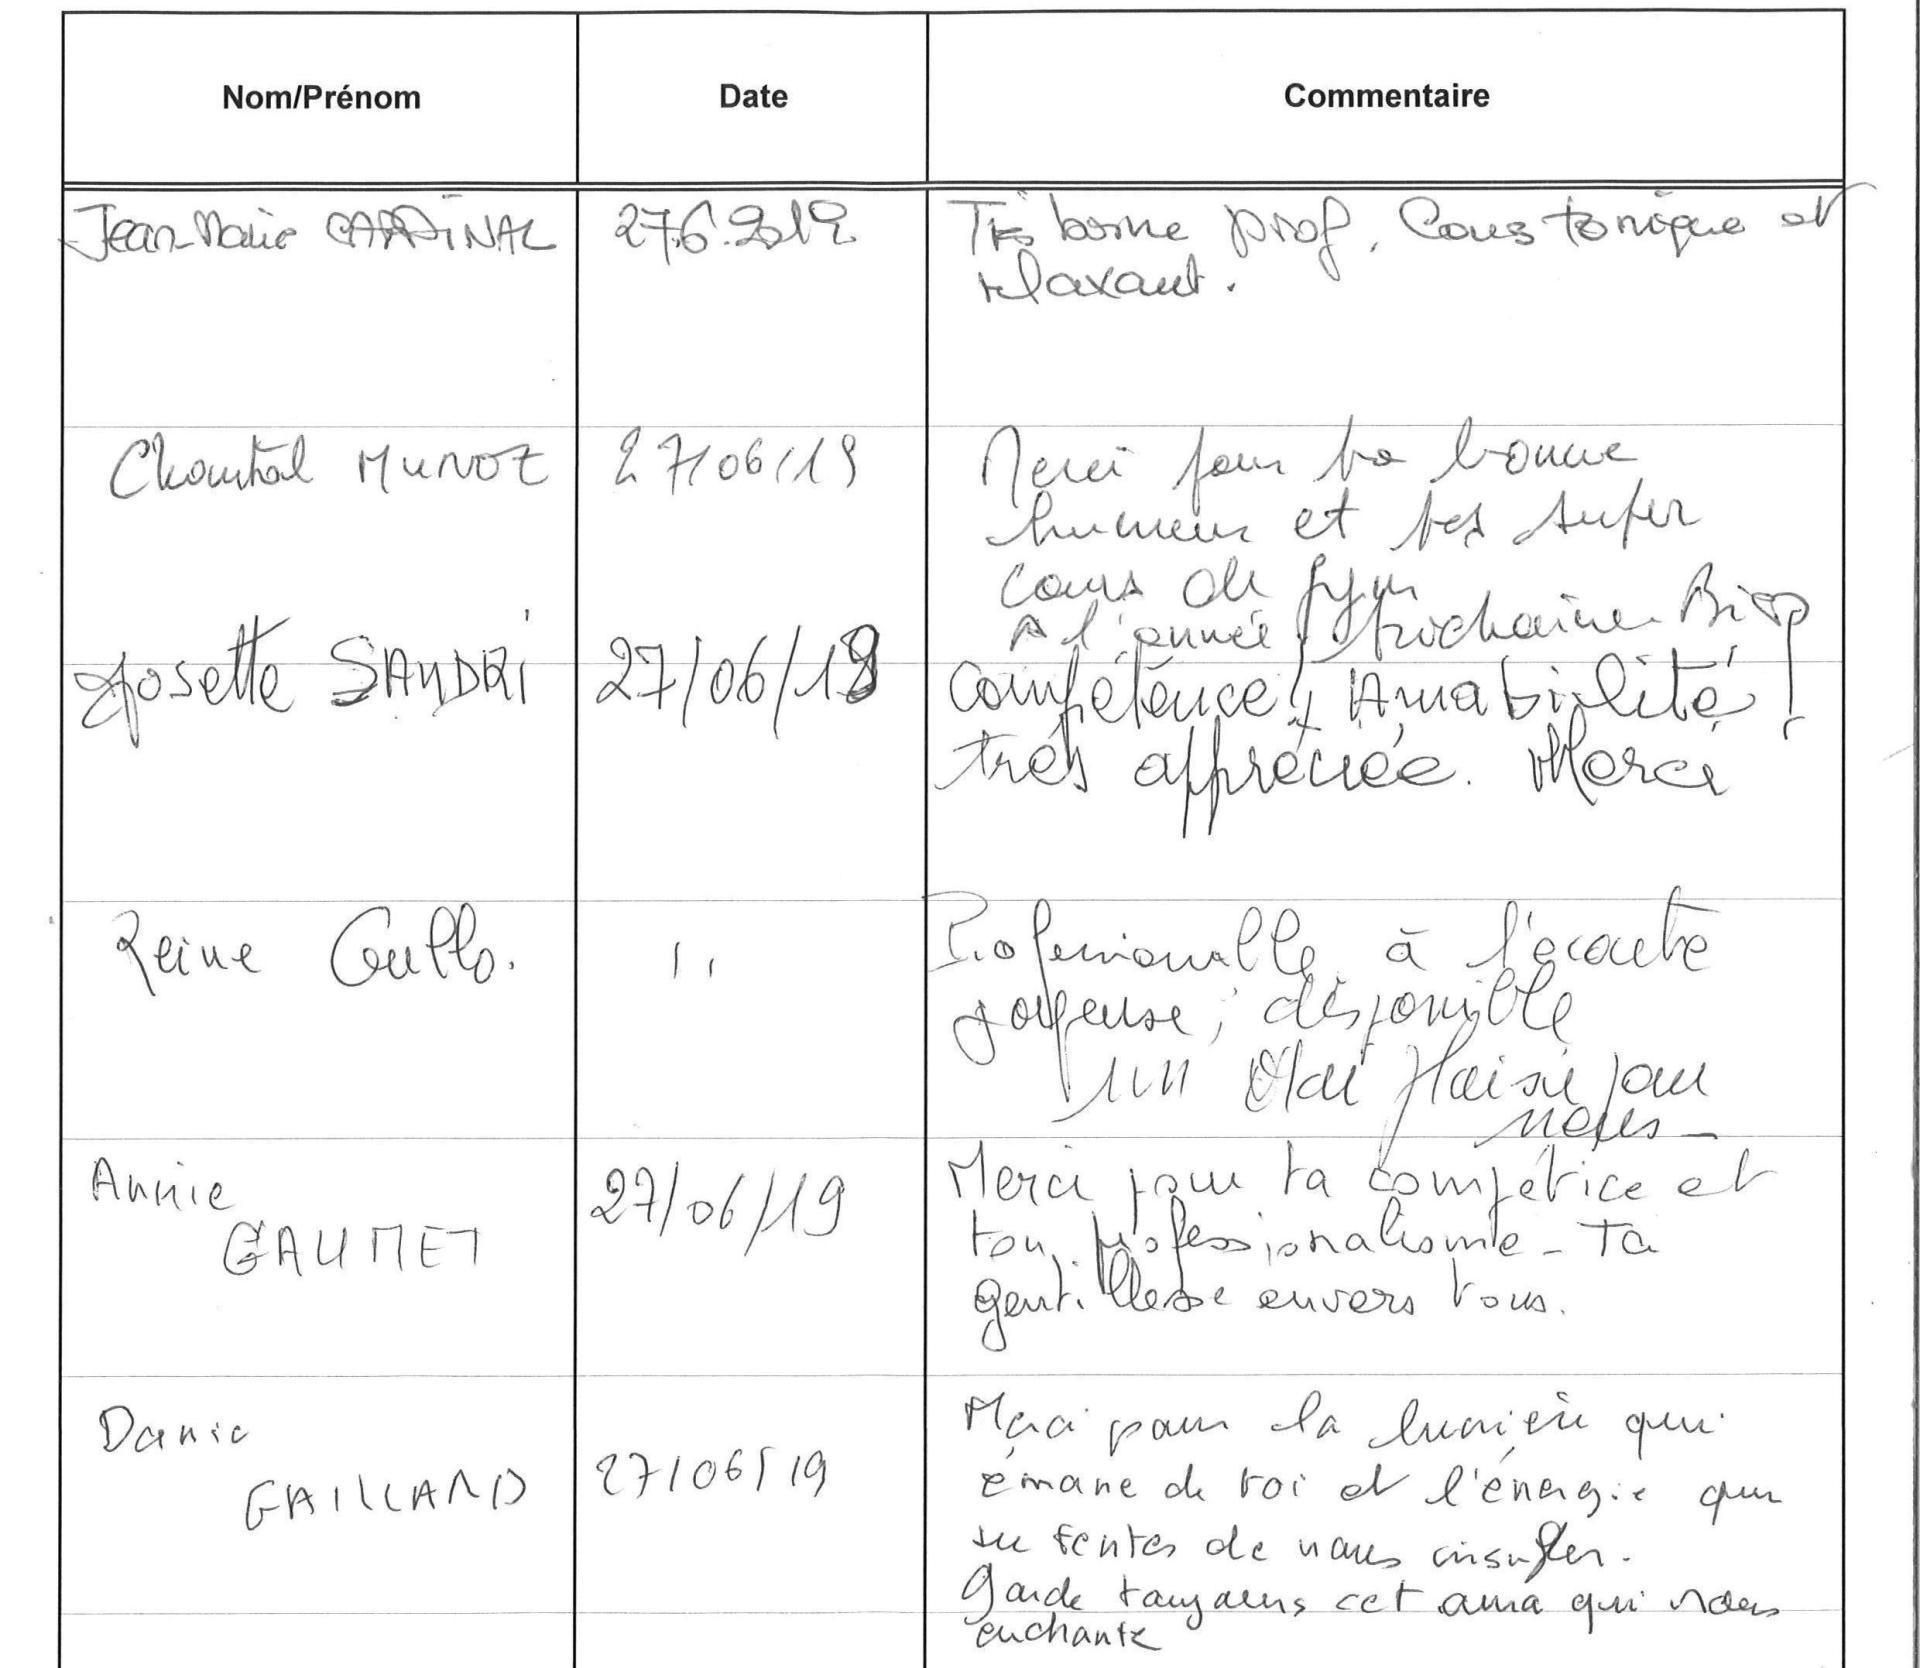 Nom/Prénom Date Commentaire
Jean-Marie CARDINAL 27.6.2019 Très bonne prof. Cours tonique et
relaxant.
Chantal MUNOZ 27/06/19 Merci pour ta bonne
humeur et tes super
cours de gym
A l'année prochaine. Bises
Josette SANDRI 27/06/19 Compétence, Amabilité !
très appréciée. Merci
Reine Gullo. " Professionnelle, à l'écoute
joyeuse, disponible
un vrai plaisir pour
nous -
Annie 27/06/19 Merci pour ta compétice et
GAUMET ton professionalisme - Ta
gentillesse envers tous.
Danie Merci pour la lumière qui
GAILLARD 27/06/19 émane de toi et l'énergie que
tu tentes de nous insufler.
Garde toujours cet aura qui nous
enchante